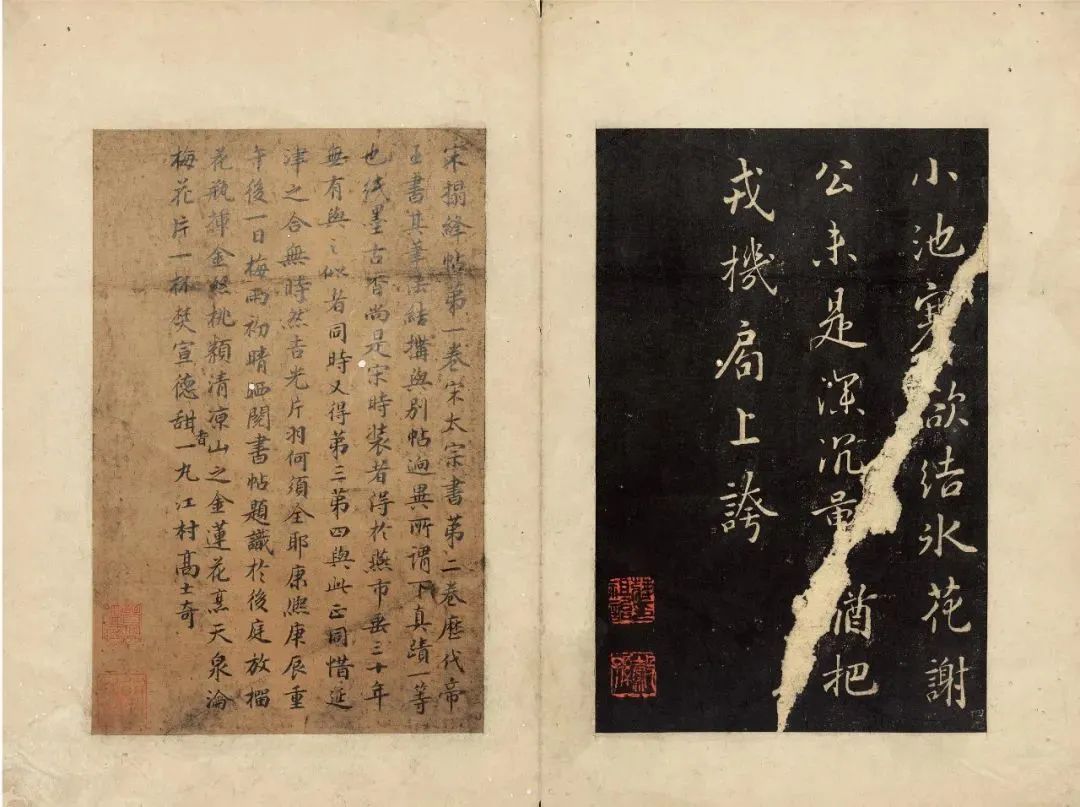 小池寒欲結氷花謝
公未是深沉量猶把
戎機局上誇
宋搨絳帖第一卷宋太宗書第二卷歷代帝
王書其筆法結搆與別帖迥異所謂下真蹟一等
也紙墨古香尚是宋時裝者得於燕市垂三十年
無有與之似者同時又得第三第四與此正同惜延
津之合無時然吉光片羽何須全耶康熙庚辰重
午後一日梅雨初晴晒閱書帖題識於後庭放榴
花瓶揷金絲桃類清凉山之金蓮花烹天泉瀹
梅花片一杯焚宣德甜香一丸江村高士奇